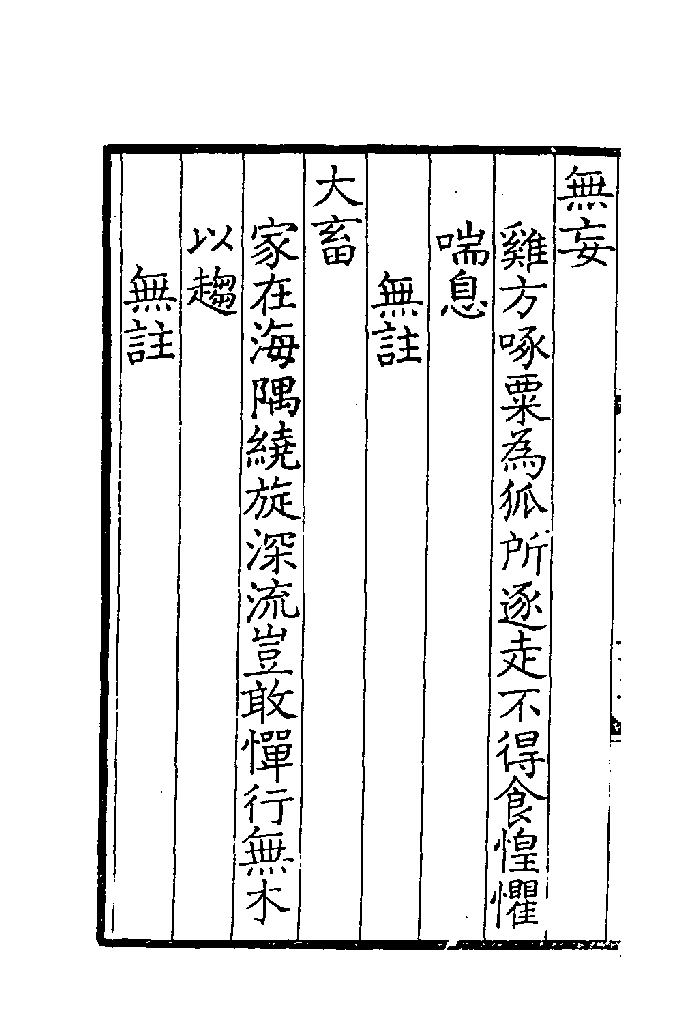 無妄
雞方啄粟為狐所逐走不得食惶懼
喘息
無註
大畜
家在海隅繞旋深流豈敢憚行無木
以趨
無註